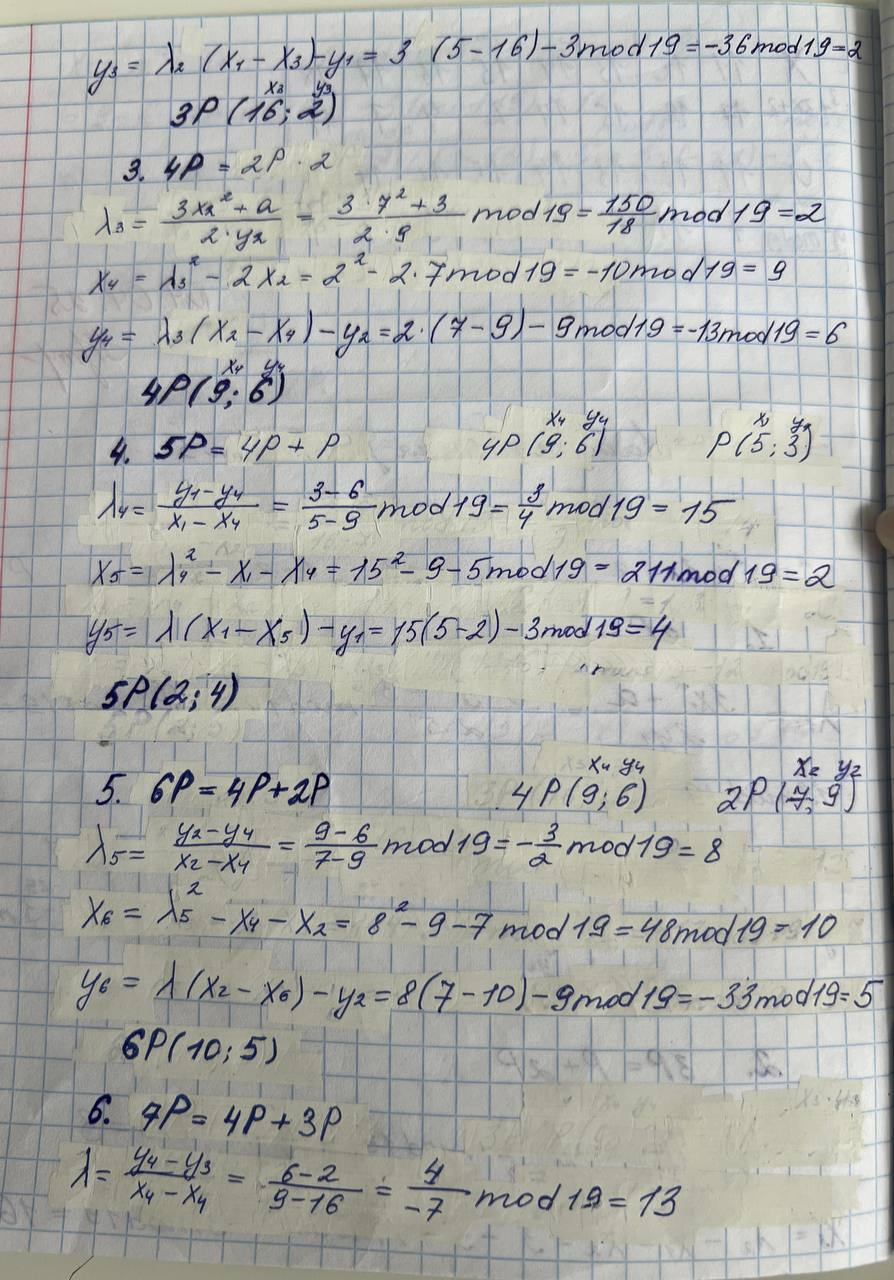 y₃ = λ₂ (x₁ − x₃) − y₁ = 3 (5 − 16) − 3 mod 19 = −36 mod 19 = 2
x₃ y₃
3P (16; 2)
3. 4P = 2P · 2
λ₃ = (3x₂² + a)/(2·y₂) = (3·7² + 3)/(2·9) mod 19 = 150/18 mod 19 = 2
x₄ = λ₃² − 2x₂ = 2² − 2·7 mod 19 = −10 mod 19 = 9
y₄ = λ₃ (x₂ − x₄) − y₂ = 2·(7 − 9) − 9 mod 19 = −13 mod 19 = 6
x₄ y₄
4P (9; 6)
x₄ y₄ x₁ y₁
4. 5P = 4P + P 4P (9; 6) P (5; 3)
λ₄ = (y₁ − y₄)/(x₁ − x₄) = (3 − 6)/(5 − 9) mod 19 = 3/4 mod 19 = 15
x₅ = λ₄² − x₁ − x₄ = 15² − 9 − 5 mod 19 = 211 mod 19 = 2
y₅ = λ (x₁ − x₅) − y₁ = 15 (5 − 2) − 3 mod 19 = 4
5P (2; 4)
x₄ y₄ x₂ y₂
5. 6P = 4P + 2P 4P (9; 6) 2P (7; 9)
λ₅ = (y₂ − y₄)/(x₂ − x₄) = (9 − 6)/(7 − 9) mod 19 = −3/2 mod 19 = 8
x₆ = λ₅² − x₄ − x₂ = 8² − 9 − 7 mod 19 = 48 mod 19 = 10
y₆ = λ (x₂ − x₆) − y₂ = 8 (7 − 10) − 9 mod 19 = −33 mod 19 = 5
6P (10; 5)
6. 7P = 4P + 3P
λ = (y₄ − y₃)/(x₄ − x₄) = (6 − 2)/(9 − 16) = 4/−7 mod 19 = 13